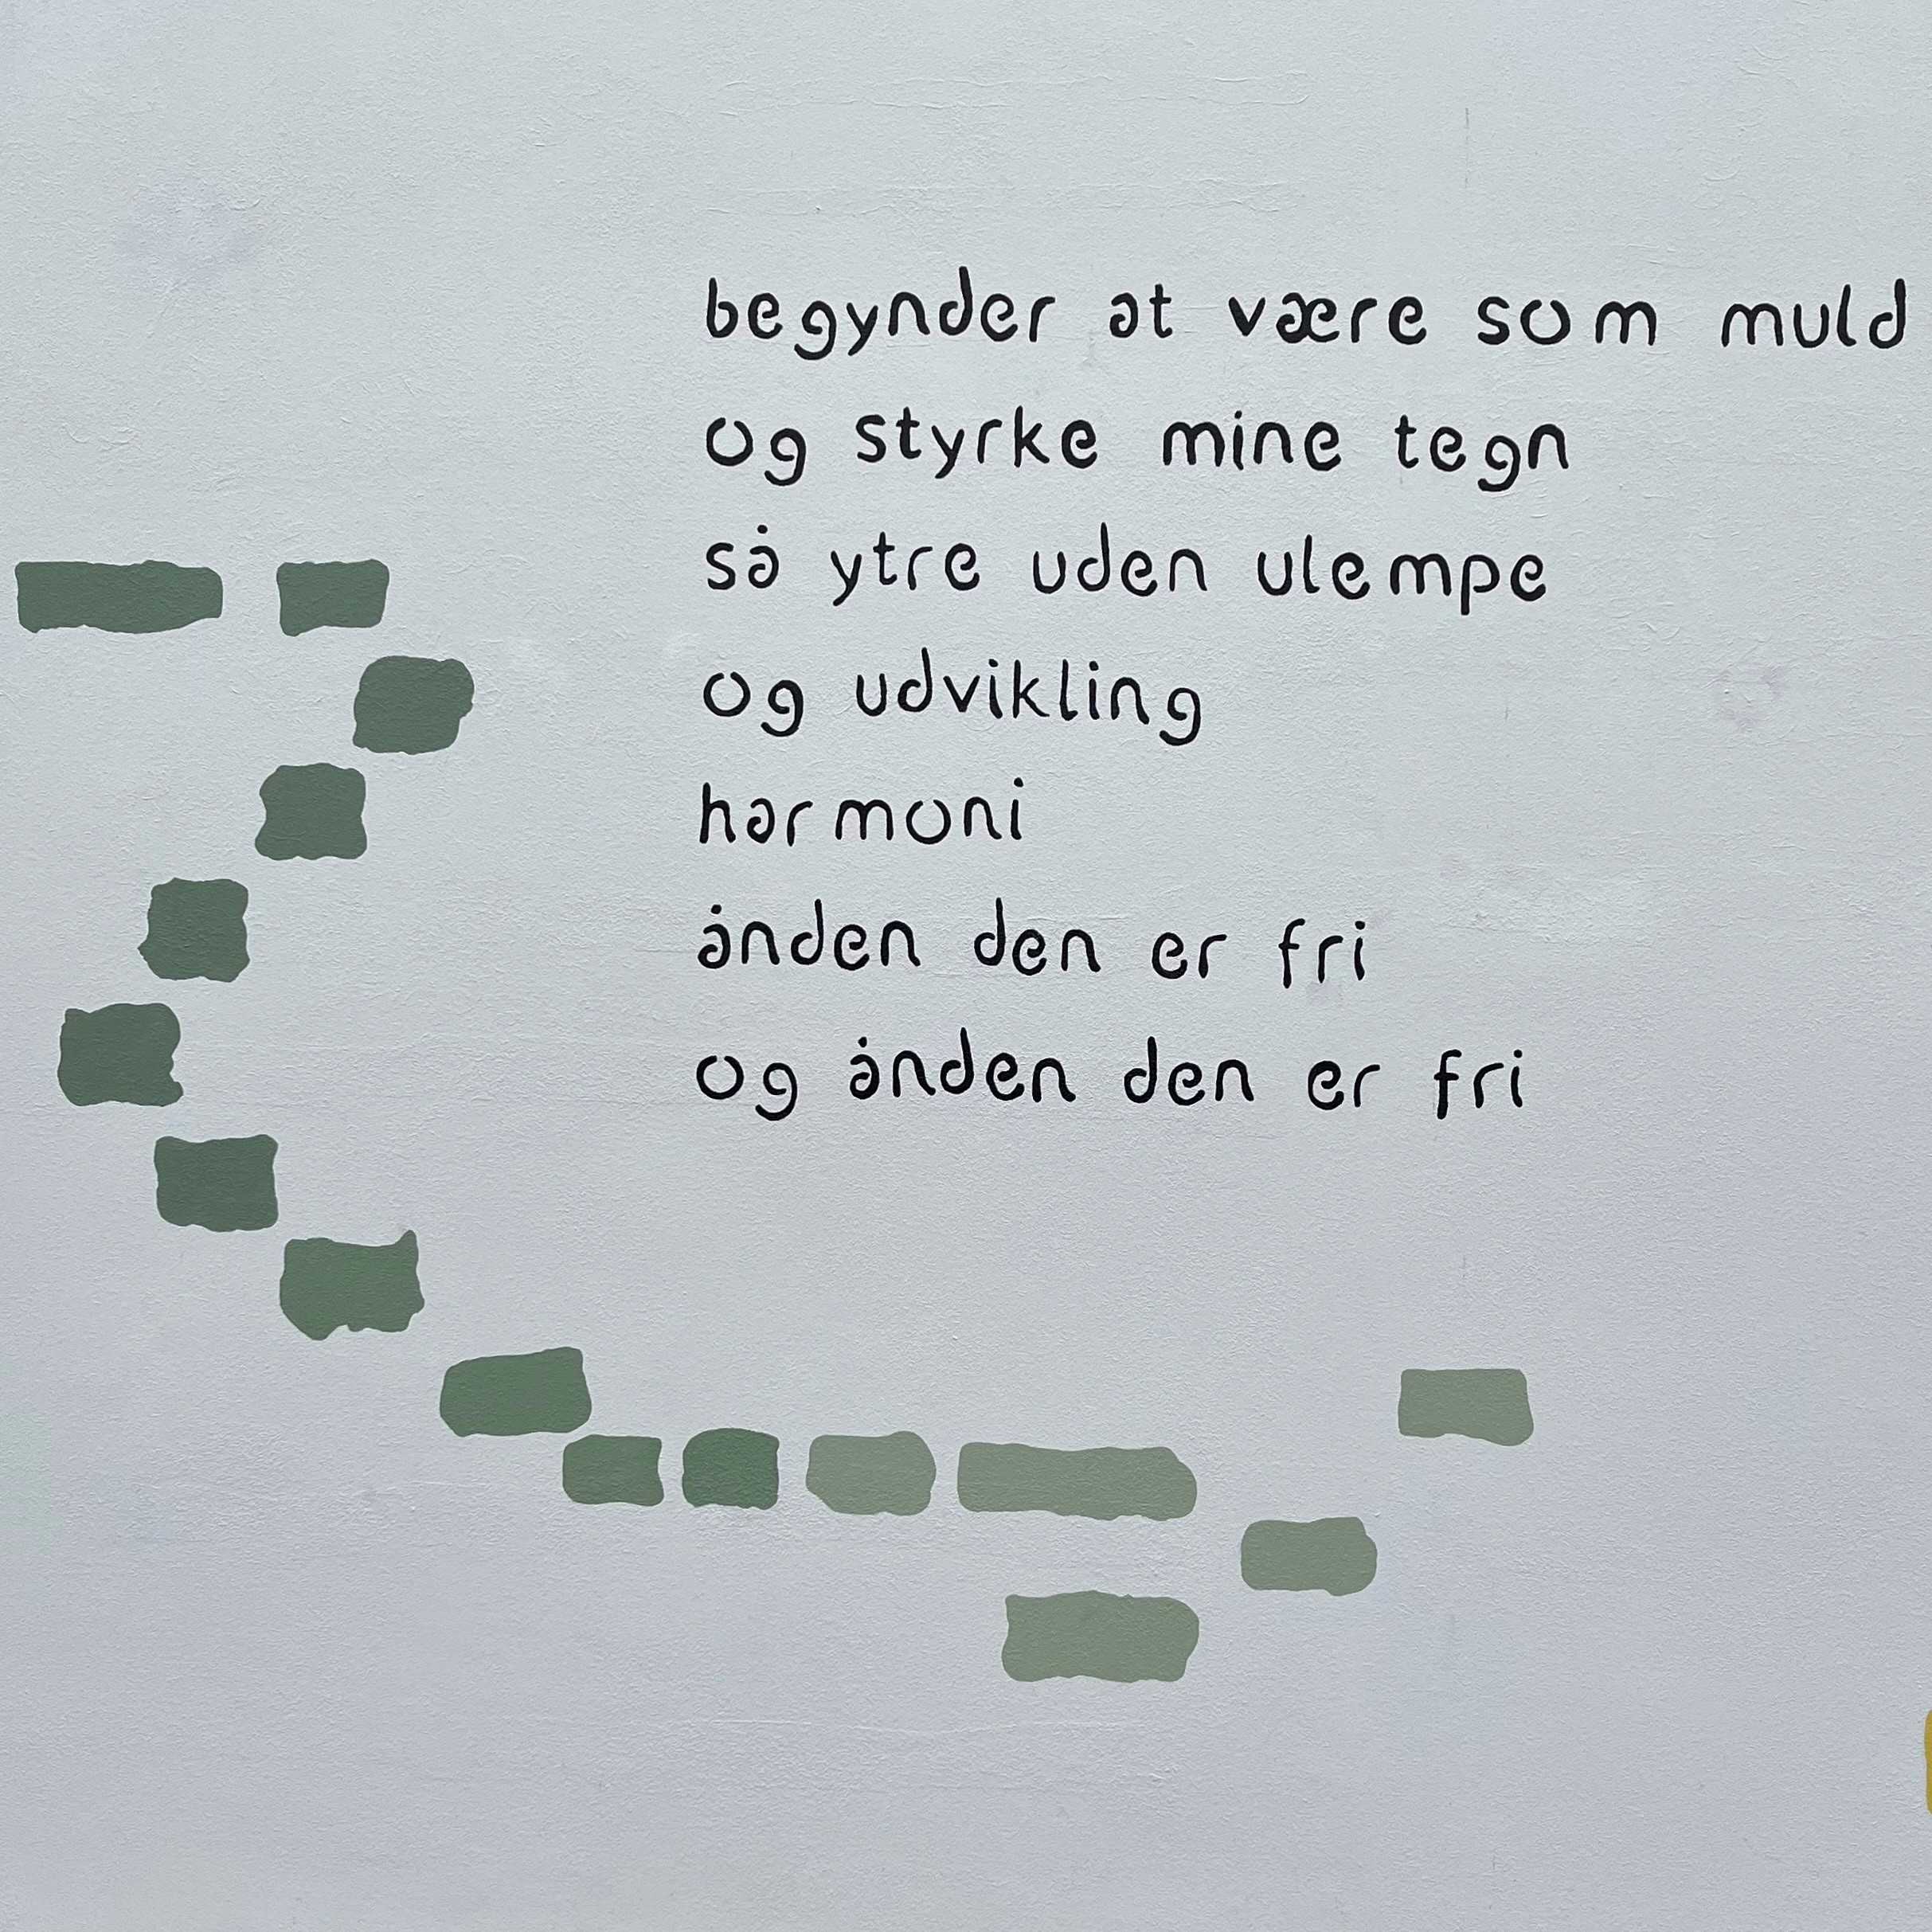 begynder at være som muld
og styrke mine tegn
så ytre uden ulempe
og udvikling
harmoni
ånden den er fri
og ånden den er fri